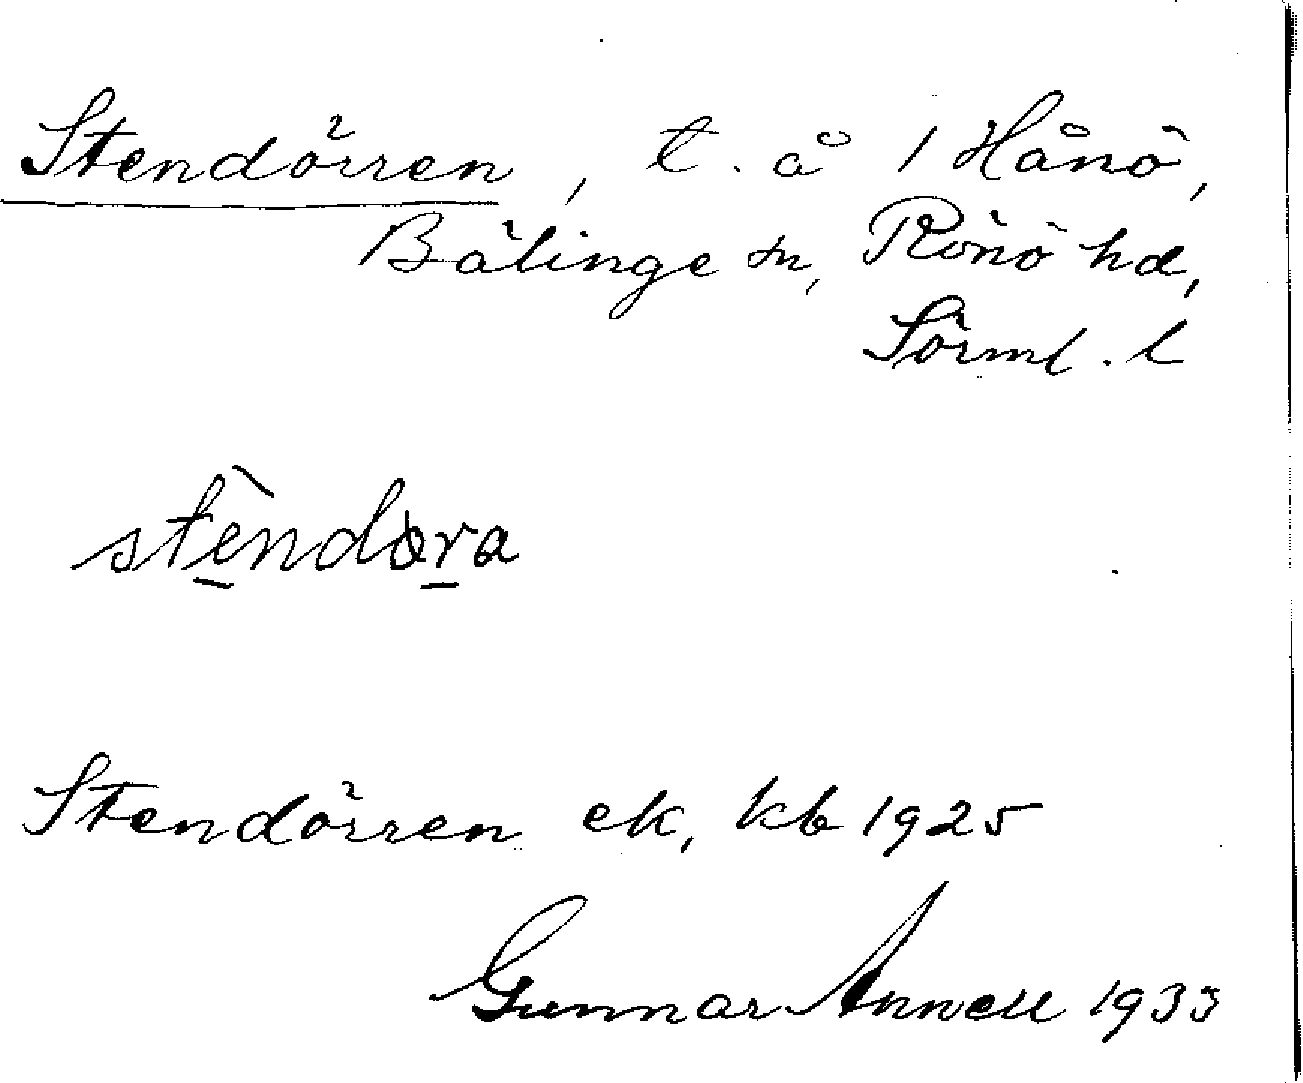 Stendörren, t. å 1 Hånö,
Bälinge sn, Rönö hd,
Sörml. l
stèndɷra
Stendörren ek, kb 1925
Gunnar Annell 1933